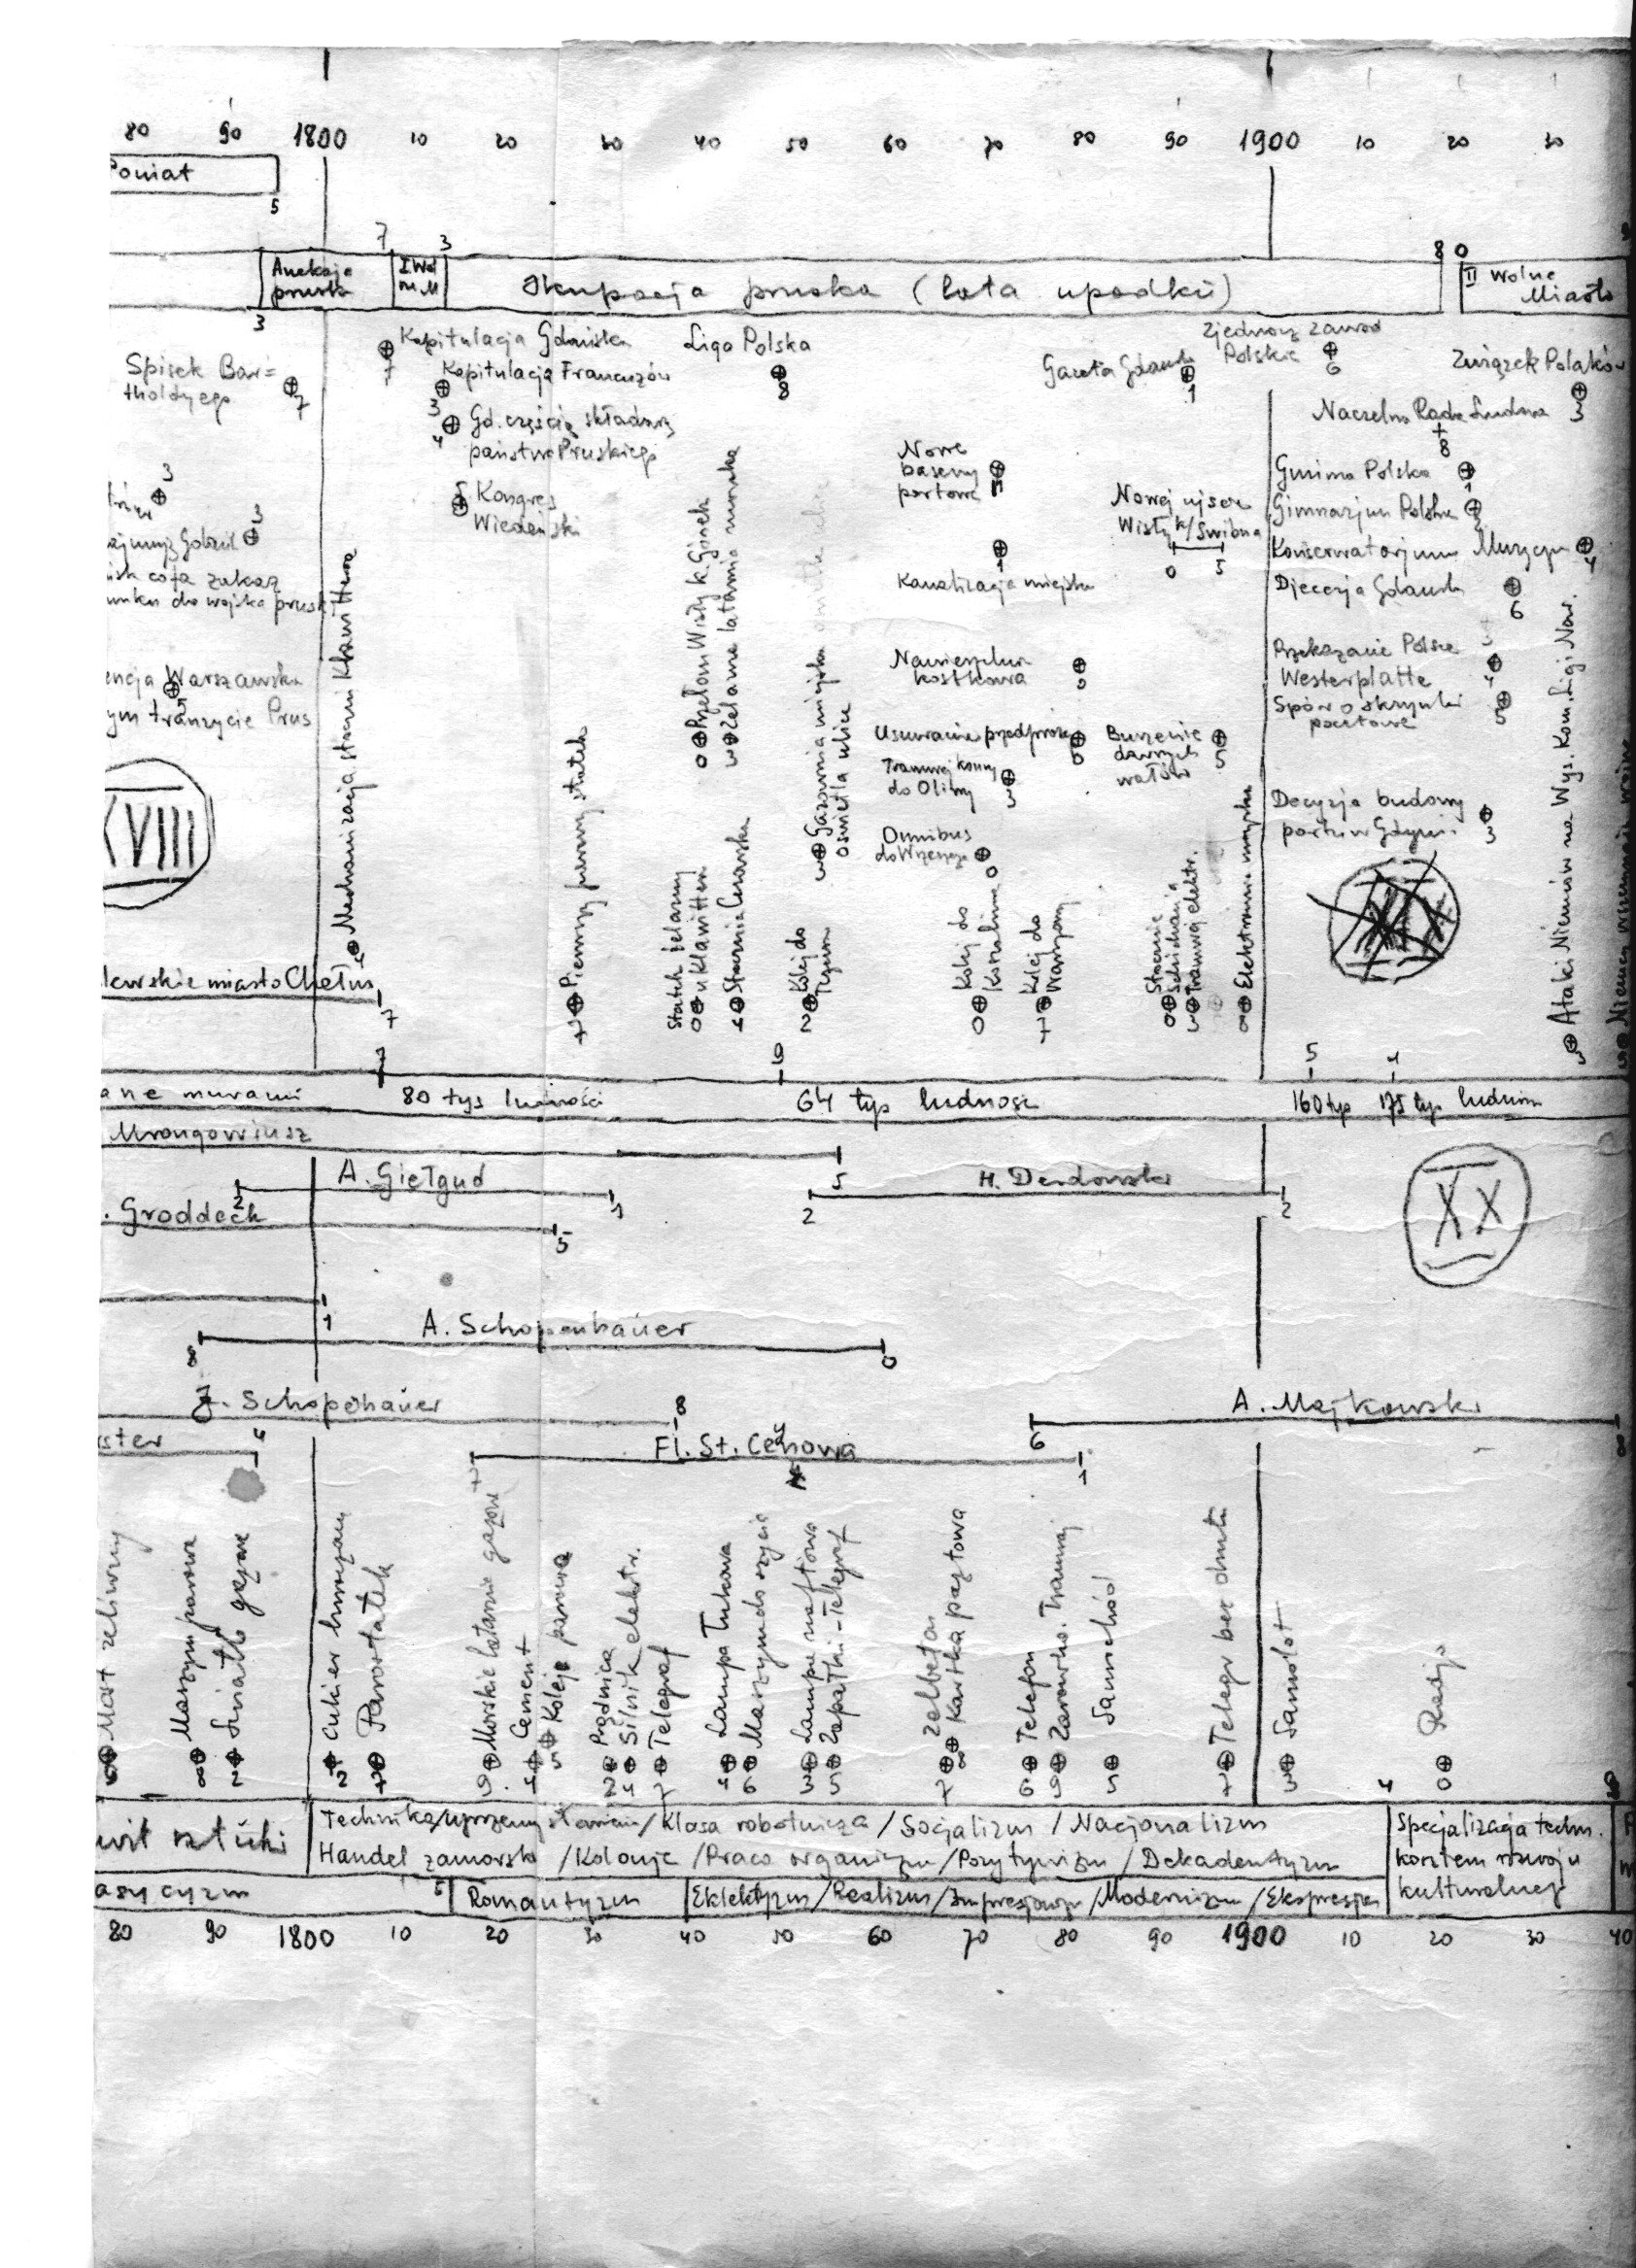 80 90 1800 10 20 30 40 50 60 70 80 90 1900 10 20 30
Poniat
5
7 3 8 0
Aneksja
pruska
I Wol
M.
Okupacja pruska (lata upadku)
II Wolne
Miasto
3
Spisek Bar=
tholdyego
7
Kapitulacja Gdańska
7
Kapitulacja Francuzów
3
Gd. częścią składową
państwa Pruskiego
4
Kongres
Wiedeński
5
Liga Polska
8
Gazeta Gdańsk
1
Zjednocz Zawod
Polskie
6
Związek Polaków
3
Naczelna Rada Ludowa
8
Gmina Polska
1
Gimnazjum Polskie
Konserwatorjum Muzyczn
4
Diecezja Gdańsk
6
Przekazanie Polsce
Westerplatte
4
Spór o skrzynki
pocztowe
5
Decyzja budowy
portu w Gdyni
3
3
3
cofa zakaz
do wojska prusk
encja Warszawska
5
ym tranzycie Prus
XVIII
lewskie miasto Chełm
7
4 Mechanizacja stoczni Klawittera
7 Pierwszy parowy statek
0 Przełom Wisły k. Górek
3 Żelazna latarnia morska
Statek żelazny
0 u Klawittera
4 Stocznia Cesarska
3 Gazownia miejska
oświetla ulice
2 Kolej do
Tczewa
Nowe
baseny
portowe
1
Kanalizacja miejska
Nawierzchnia
kostkowa
Usuwanie przedproży
Tramwaj konny
do Oliwy
3
Omnibus
do Wrzeszcza
0
0 Kolej do
Koszalina
7 Kolej do
Warszawy
Nowej ujście
Wisły k/Świbna
0 5
Burzenie
dawnych
wałów
5
0 Stocznia
Schichaua
Tramwaj elektr.
8 Elektrownia miejska
3 Ataki Niemców na Wys. Kom. Ligi Nar.
7 9 5 4
ane murami
80 tys ludności
64 tys ludnośc
160 tys
175 tys ludnośc
Mrongowiusz
5
A. Giełgud
2 1
H. Derdowski
2 2
. Groddeck
5
XX
1
A. Schopenhauer
8 0
J. Schopenhauer
8
A. Majkowski
6 8
ster
4
Fl. St. Cenowa
7 1
Most żeliwny
8 Maszyna parowa
2 Światło gazowe
2 Cukier buraczany
7 Parostatek
9 Morskie latarnie gazowe
4 Cement
5 Kolej parowa
2 Prądnica
4 Silnik elektr.
7 Telegraf
4 Lampa łukowa
6 Maszyna do szycia
3 Lampa naftowa
5 Zapałki - Telegraf
7 Żelbeton
8 Kartka pocztowa
6 Telefon
9 Żarówka. Tramwaj
5 Samochód
7 Telegr bez drutu
3 Samolot
0 Radjo
4
wit sztuki
Technika/uprzemysłowienie/Klasa robotnicza/Socjalizm/Nacjonalizm
Handel zamorski/Kolonje/Praca organiczn/Pozytywizm/Dekadentyzm
Specjalizacja techn.
kosztem rozwoju
kulturalnego
asycyzm
5
Romantyzm
Eklektyzm/Realizm/Impresjonizm/Modernizm/Ekspresjon
80 90 1800 10 20 30 40 50 60 70 80 90 1900 10 20 30 40